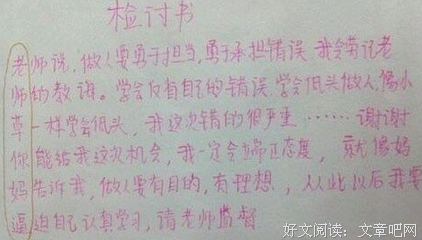 检讨书
老师说，做人要勇于担当，勇于承担错误 我会牢记老
师的教诲。学会反省自己的错误，学会低头做人，像小
草一样学会低头，我这次错的很严重……谢谢
你能给我这次机会，我一定会端正态度，就像妈
妈告诉我，做人要有目的，有理想，从此以后我要
逼迫自己认真学习，请老师监督
好文阅读：文章吧网